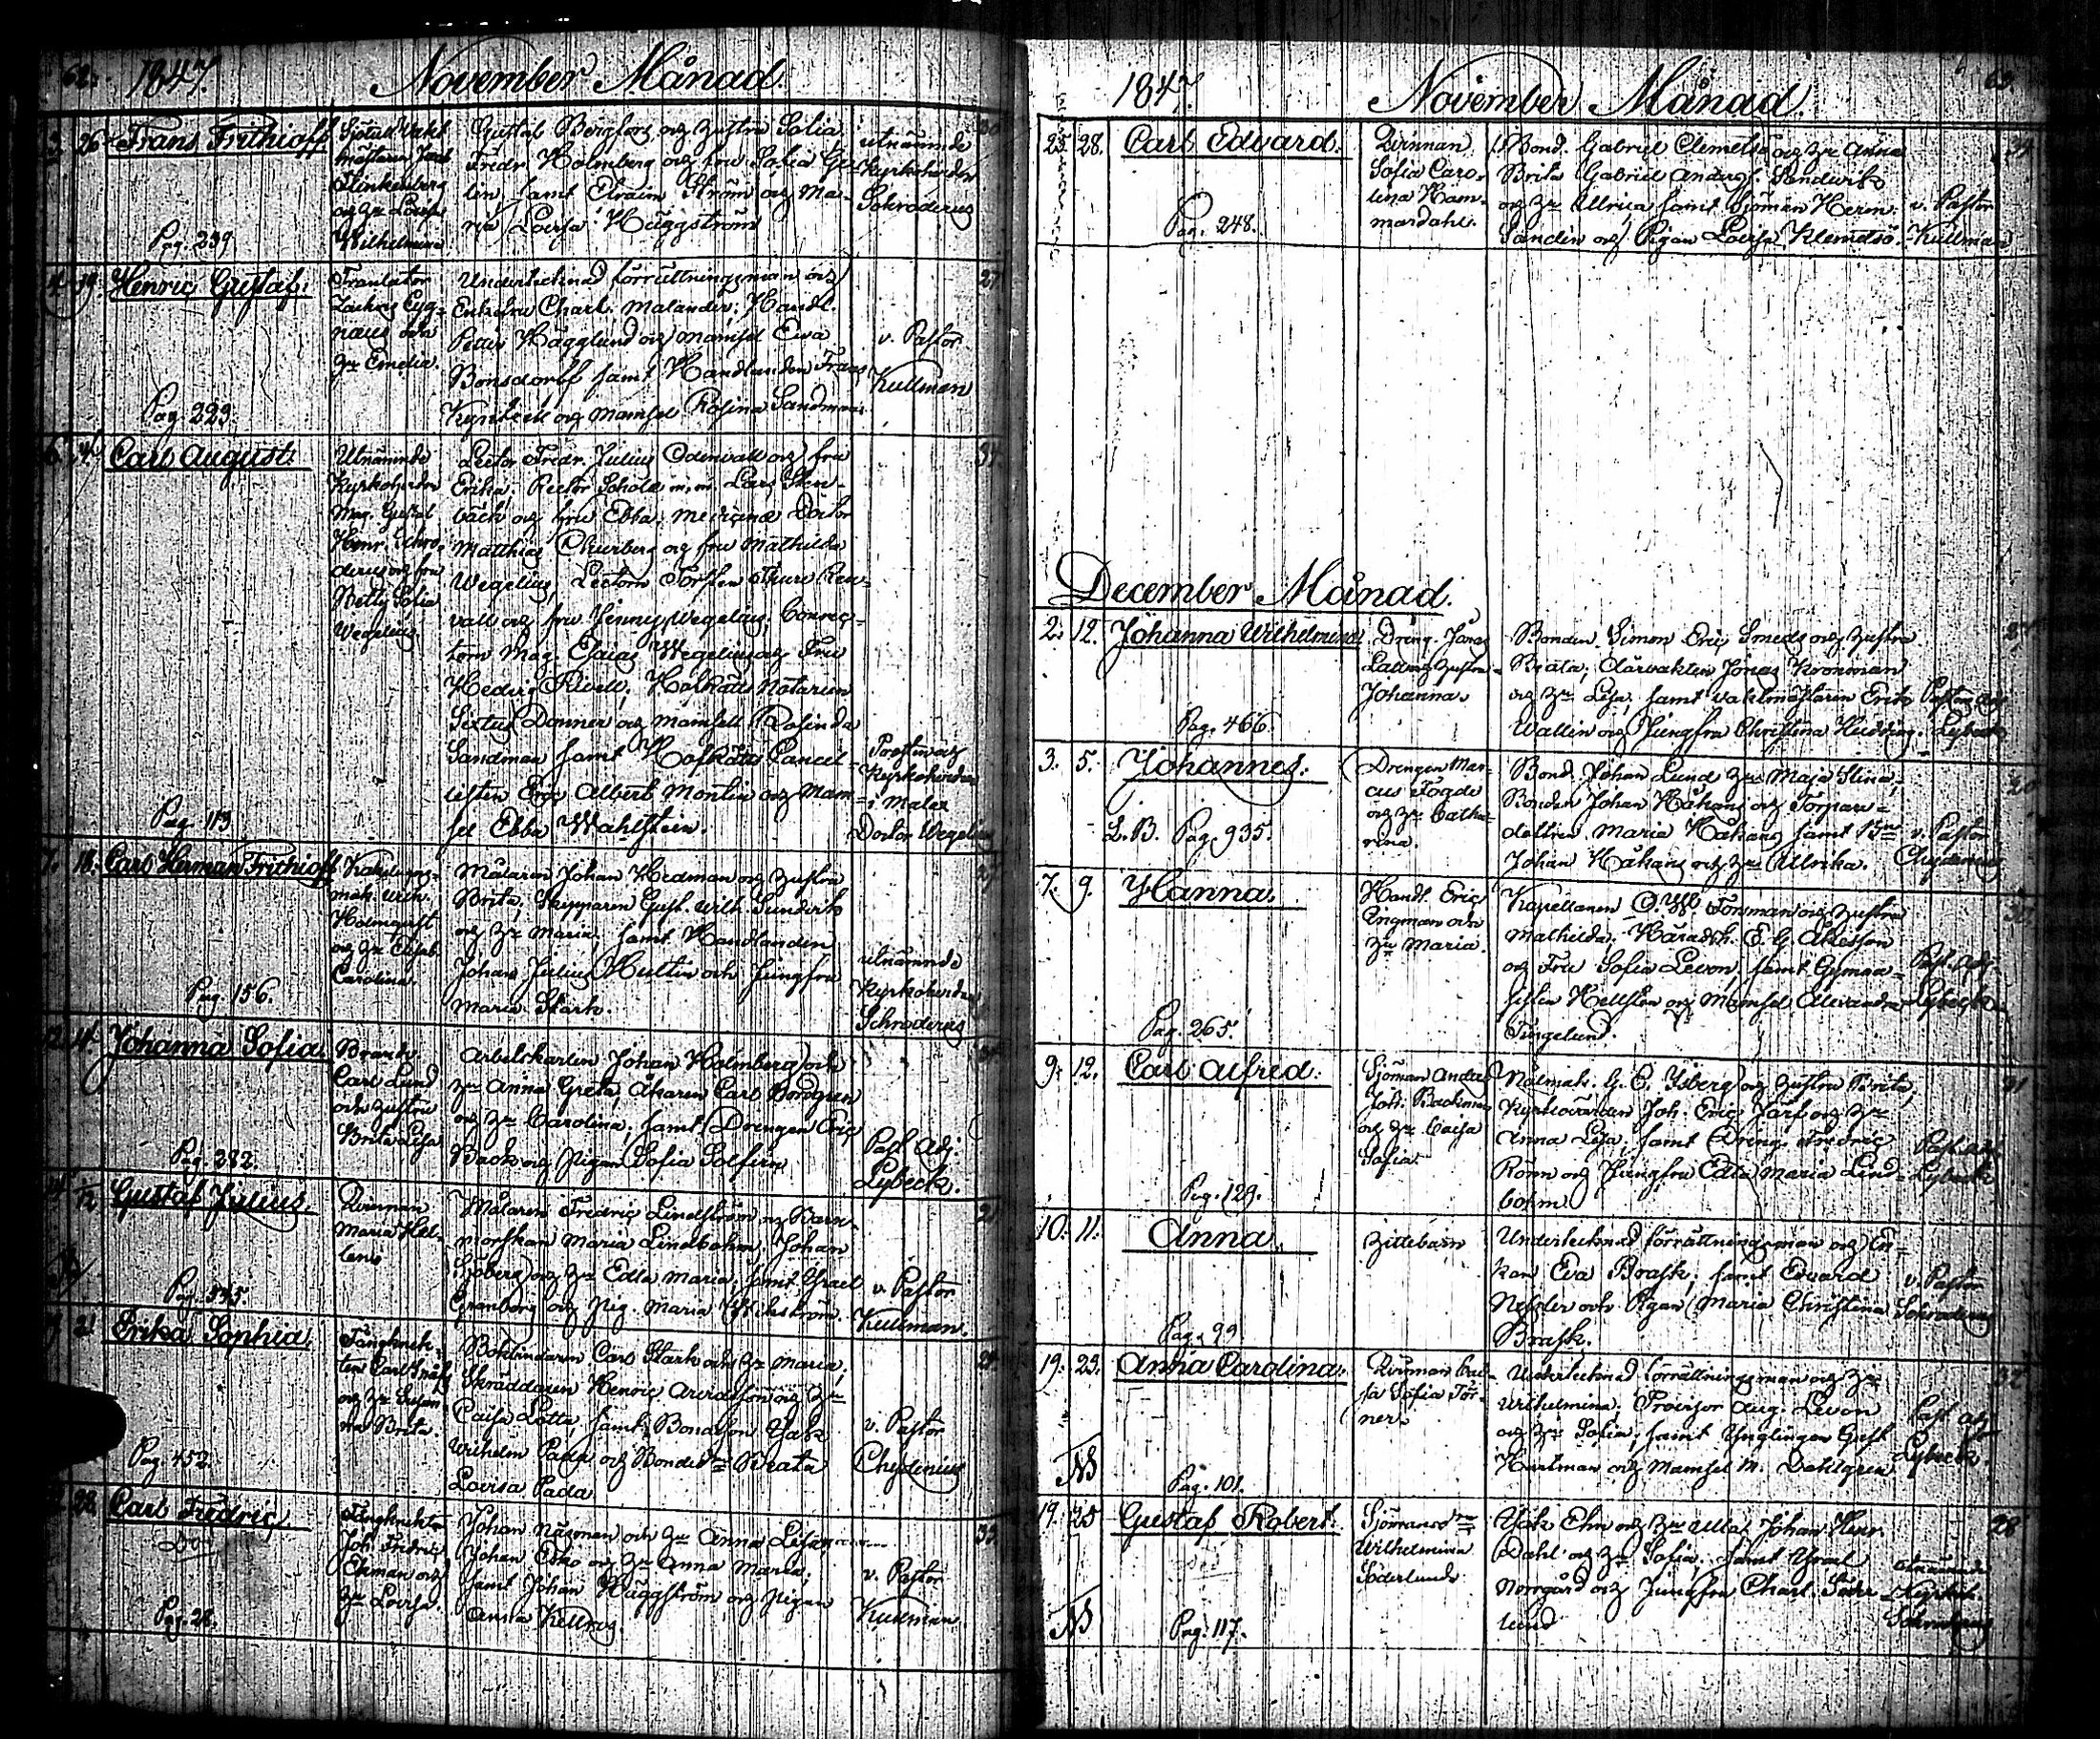 62. 1847. November Månad.
3. 26. Frans Frithioff.
Pag. 239
Sjötull Vakt
mästaren Jacob
Flinkenberg
och Hu Lovisa
Wilhelmina
Gustaf Bergfors och hustru Sofia
Fredr. Holmberg och fru Sofia
samt Efraim Ström och Ma-
ria Lovisa Häggström
utnämnde
Kyrkoherden
Schroderus
30
4. 19. Henric Gustaf.
Pag. 223.
Translator
Zachris Cyg-
næus och
Hu Emelia.
Undertecknad förrättningsman och
Enkefru Charl. Malander; Handl.
Petter Hägglund och Mamsel Eva
Bonsdorff samt Handlanden Frans
och Mamsel Rosina Sandman
v. Pastor
Kullman
27
6. 4. Carl August.
Pag. 113
Utnämnde
Kyrkoherden
Mag. Gustaf
Henr. Schro-
derus och fru
Betty Sofia
Wegelius.
Lector Fredr. Julius Odenvall och fru
Erika; Rector Scholæ m.m. Lars Sten-
bäck och fru Ebba; Medicinæ Doctor
Matthias Churberg och fru Mathilda
Wegelius; Lectorn Torsten Thure Ren-
vall och fru Jenny Wegelius; Conrec-
torn Mag. Esaias Wegelius och Fru
Hedvig Hofrätts Notarien
Sixtus Donner och Mamsell Rosinda
Sandman samt Hofrätts Cancel-
listen Eric Albert Montin och Mam-
sel Ebba Wahlstein.
Prosten och
Kyrkoherden
i Malax
Doctor Wegelius
7. 18. Carl Herman Frithioff
Pag. 156.
mak. Wilh.
Holmqvist
och Hu Elisab.
Carolina.
Målaren Johan Hedman och hustru
Brita; Skepparen Gust. Wilh. Sundvik
och Hu Maria; samt Handlanden
Johan Julius Hultin och Jungfru
Maria Stark.
utnämnde
Kyrkoherden
Schroderus
14. Johanna Sofia.
Pag. 282.
Carl Lund
och hustru
Brita Lisa
Arbetskarlen Johan Holmberg och
Hu Anna Greta, Åkaren Carl Nordgren
och Hu Carolina; samt Drengen Eric
Back och Pigan Sofia Solfirn
Past. Adj.
Lybeck.
Gustaf Julius.
Pag. 335.
Qvinnan
Maria Hel-
lens
Målaren Fredric Lindström och Barn-
morskan Maria Lindbohm; Johan
Sjöberg och Hu Edla Maria; samt Israel
Granberg och Pig. Maria Wikström.
v. Pastor
Kullman.
21. Erika Sophia
Pag. 452.
Fångknek-
ten Carl Träff
och Hu Susan-
na Brita.
Bokbindaren Carl Stark och Hu Maria;
Skräddaren Henric Arvidsson och Hu
Caisa Lotta; samt Bondeson Jak.
Wilhelm Pada och Bonded:r Beata
Lovisa Pada.
v. Pastor
Chydenius
22. Carl Fredric
Död
Pag. 28.
Fångknekten
Joh. Fredric
Ekman och
Hu Lovisa.
Johan Näsman och Hu Anna Lisa;
Johan Esko och Hu Anna Maria;
samt Johan Häggström och Pigan
Anna Kellros.
v. Pastor
Kullman
1847. November Månad. 63
25. 28. Carl Edvard.
Pag. 248.
Qvinnan
Sofia Caro-
lina Ham-
mardahl.
Bond. Gabriel Clemetsö och Hu Anna
Brita Gabriel Anders. Sandvik
och Hu Ullrica samt Sjöman Herm.
Sandin och Pigan Lovisa Klemetsö.
v. Pastor
Kullman
December Månad.
2. 12. Johanna Wilhelmina
Pag. 466.
Dreng. Jonas
Ladvag hustru
Johanna.
Bonden Simon Eric Smeds och hustru
Beata; Jonas Kronman
och Hu Lisa; samt Vaktmästaren Erik
Wallin och Jungfru Christina Hedding.
Pastor Adj.
Lybeck
3. 5. Johannes.
L. B. Pag. 935.
Drengen Mar-
cus Fogde
och Hu Catha-
rina.
Bond. Johan Lund Hu Maja Stina;
Bonden Johan Håkans och Torpare-
dottren Maria Håkans samt
Johan Håkans och Hu Ullrika.
v. Pastor
Chydenius
7. 9. Hanna.
Pag. 265.
Handl. Eric
Engman och
Hu Maria.
Kapellanen O. W. Forsman och hustru
Mathilda; Häradsh. E. G. Åkesson
och Fru Sofia Levon; samt Gymna-
sisten Hellsten och Mamsel Alexandra
Tingelund.
Past. Adj.
Lybeck
9. 12. Carl Alfred.
Pag. 129.
Sjöman Anders
Joh. Backman
och Hu Caisa
Sofia.
Nålmak. G. E. Ysberg och hustru Brita;
Kyrkovärden Joh. Eric Färf och Hu
Anna Lisa; samt Dreng. Fredric
Rönn och Jungfru Edla Maria Lind-
bohm
Past. Adj.
Lybeck
31
10. 11. Anna.
Pag. 99
Hittebarn
Undertecknad förrättningsman och En-
kan Eva Brask; samt Edvard
Nessler och Pigan Maria Christina
Brask.
v. Pastor
Schroderus
19. 23. Anna Carolina.
Pag. 101.
Qvinnan Cai-
sa Sofia Tör-
ner.
Undertecknad förrättningsman och Hu
Wilhelmina; Provisor Aug. Levon
och Hu Sofia; samt Ynglingen Gust.
Hartman och Mamsel M. Dahlgren
Past. Adj.
Lybeck
32
19. 25 Gustaf Robert.
Död
Pag. 117.
Sjömansd:r
Wilhelmina
Söderlund
Jak. Ehn och Hu Ulla; Johan Henr.
Dahl och Hu Sofia; samt Israel
Norrgård och Jungfru Charl. Söder-
lund
utnämnde
Kyrkoh.
Schroderus
28